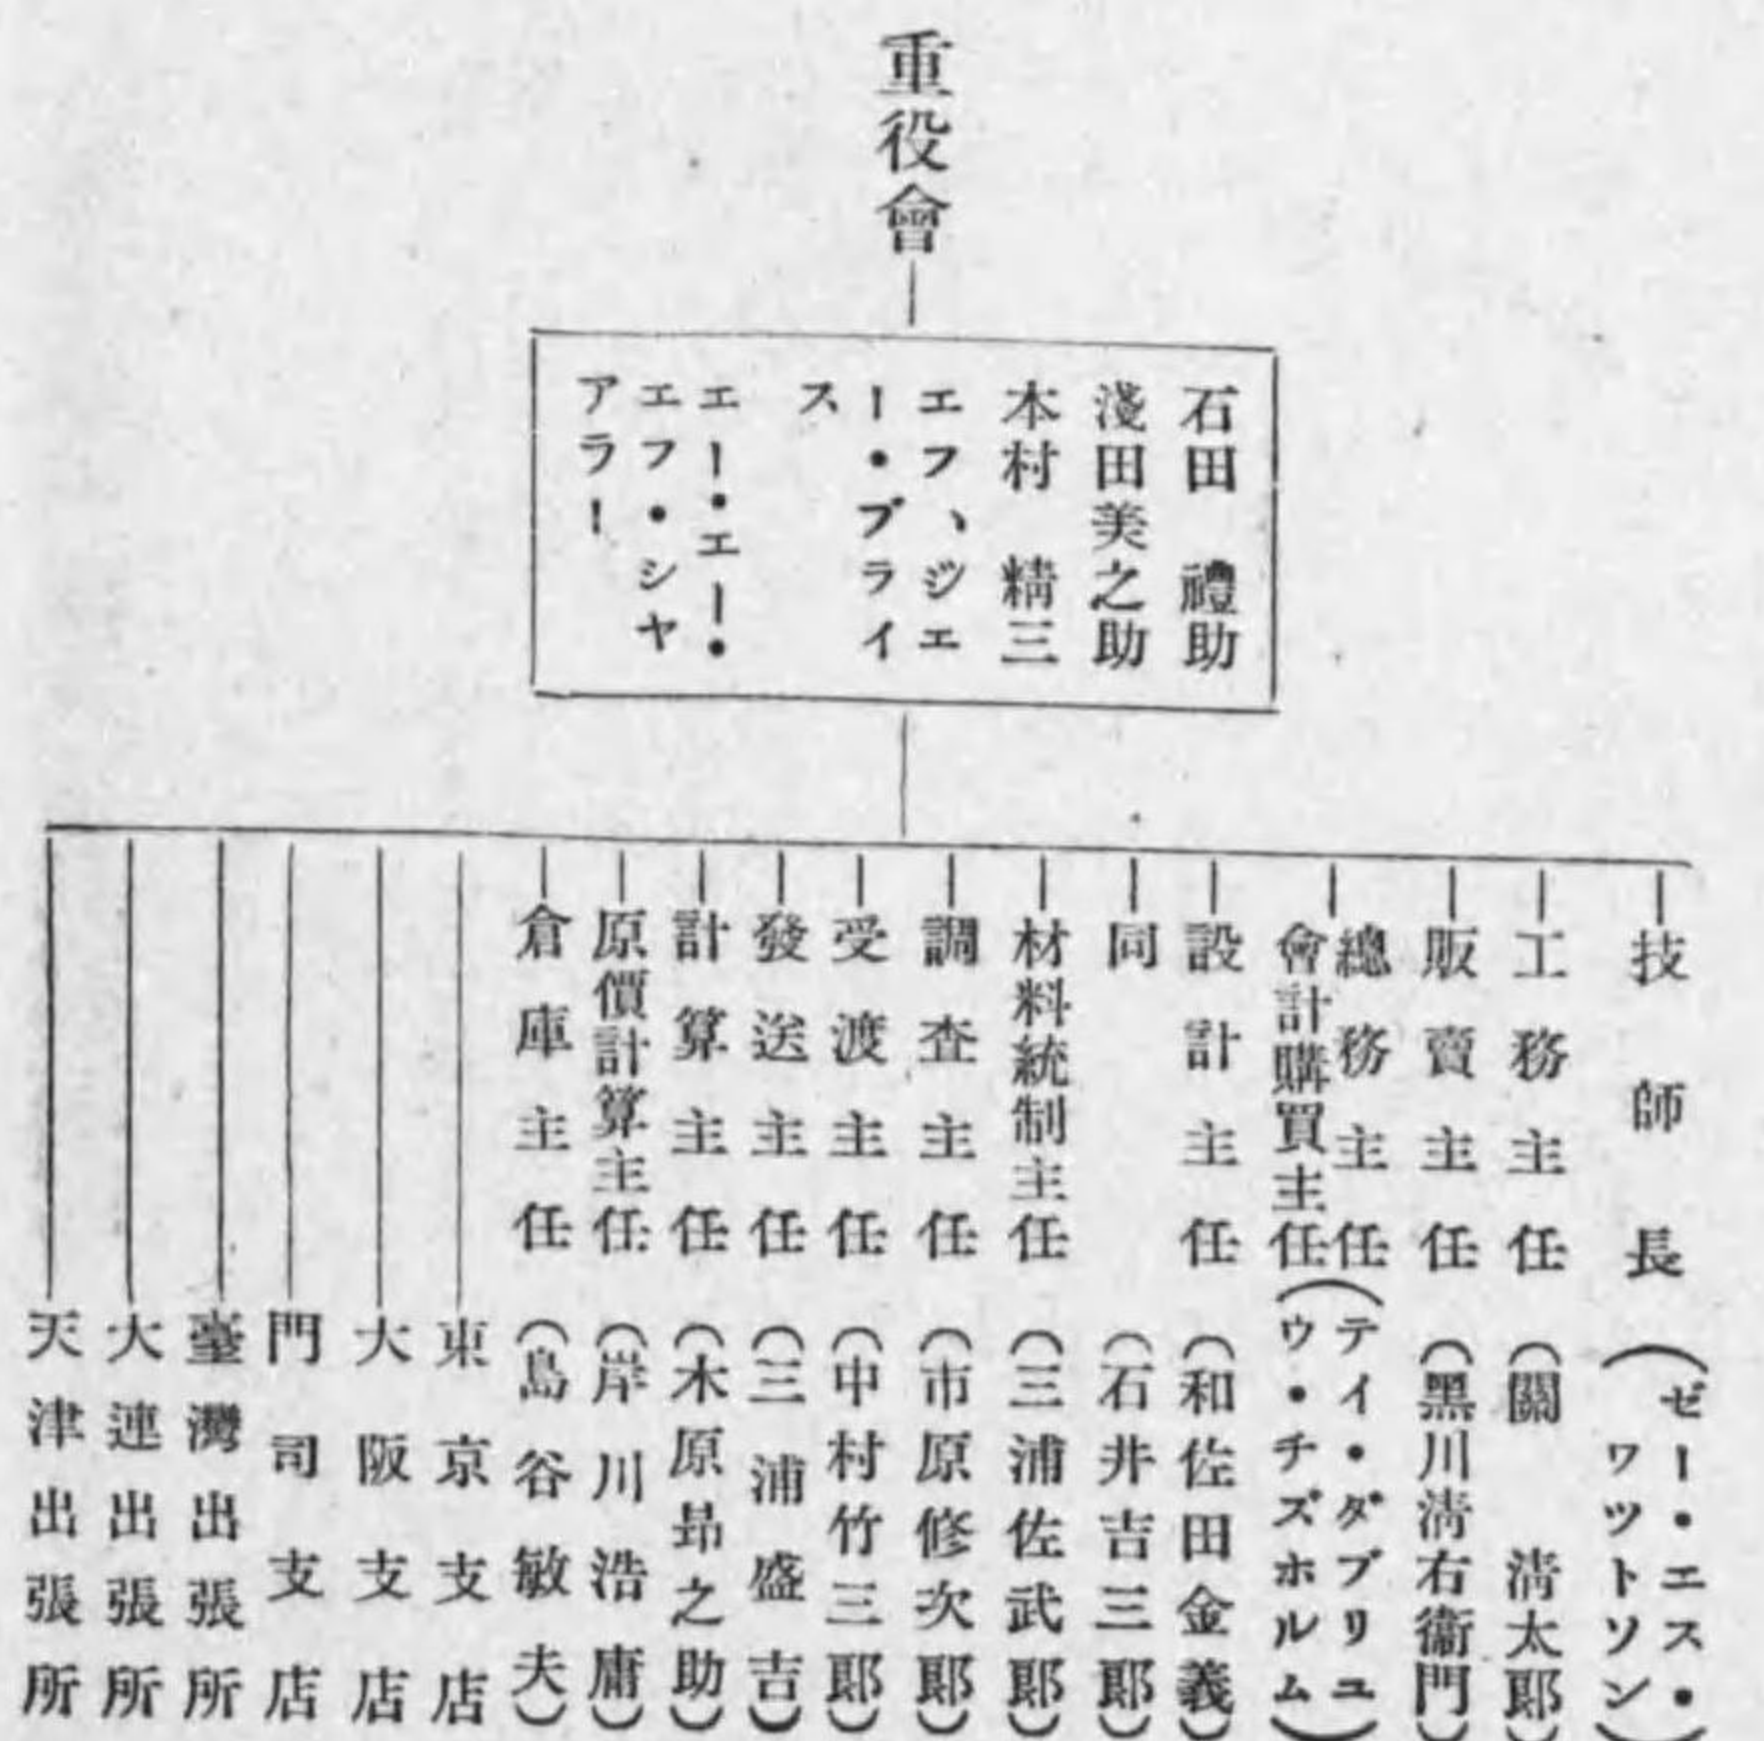 重役會
石田　禮助
淺田美之助
本村　精三
エフ、ジエ
ー・ブライ
ス
エー・エー・
エフ・シヤ
アラー
技師長（ゼー・エス・
ワツトソン）
工務主任（關　淸太郞）
販賣主任（黑川淸右衞門）
總務主任
會計購買主任
（テイ・ダブリユ
ウ・チズホルム）
設計主任（和佐田金義）
同（石井吉三郞）
材料統制主任（三浦佐武郞）
調査主任（市原修次郞）
受渡主任（中村竹三郞）
發送主任（三浦盛吉）
計算主任（木原昂之助）
原價計算主任（岸川浩庸）
倉庫主任（島谷敏夫）
東京支店
大阪支店
門司支店
臺灣出張所
大連出張所
天津出張所